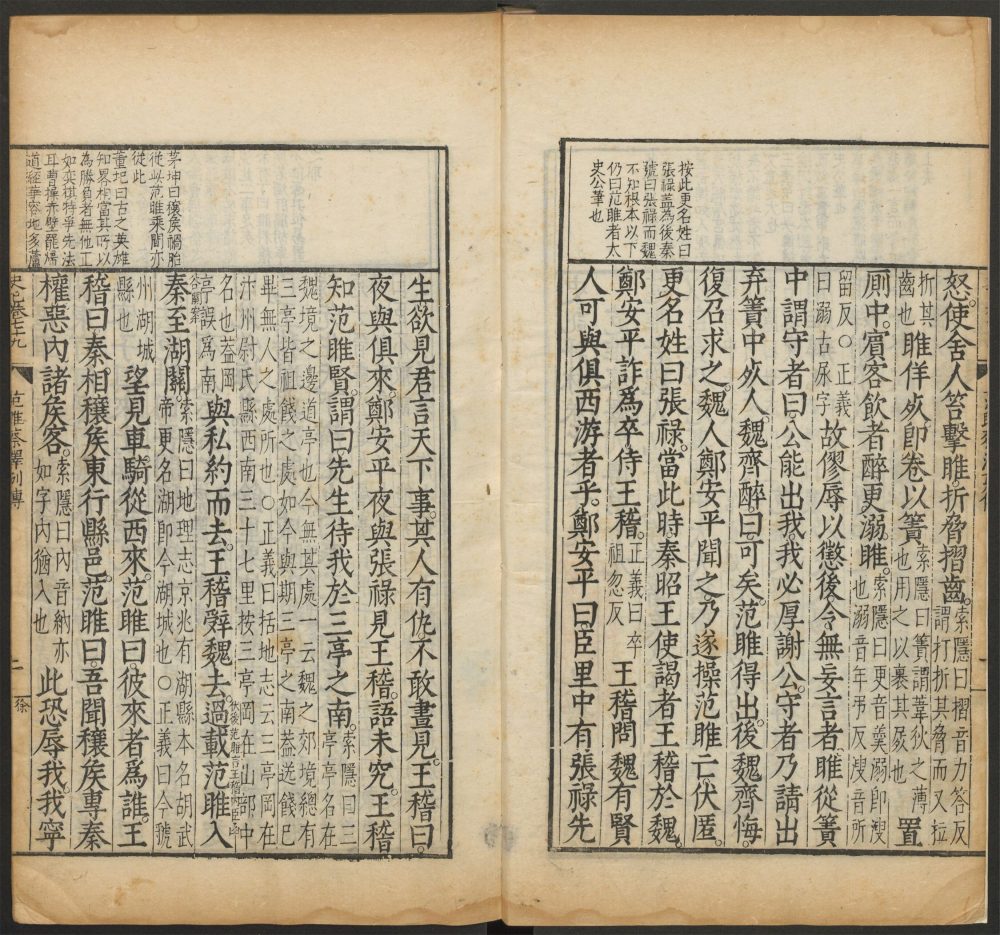 按此更名姓曰
張祿蓋為後秦
號曰張祿而魏
不知根本以下
仍曰范雎者太
史公筆也
怒。使舍人笞擊雎。折脅摺齒。索隱曰摺音力答反謂打折其脅而又拉
折其齒也雎佯死即卷以簀。索隱曰簀謂葦狄之薄也用之以裹其屍也置
廁中。賓客飲者醉。更溺雎。索隱曰更音羮溺即溲也溺音年弔反溲音所
留反○正義曰溺古尿字故僇辱以懲後令無妄言者雎從簀
中謂守者曰。公能出我。我必厚謝公。守者乃請出
弃簀中死人。魏齊醉。曰。可矣。范雎得出。後魏齊悔。
復召求之。魏人鄭安平聞之。乃遂操范雎亡。伏匿。
更名姓曰張祿。當此時。秦昭王使謁者王稽於魏。
鄭安平詐爲卒侍王稽。正義曰卒祖忽反王稽問魏有賢
人可與俱西游者乎。鄭安平曰。臣里中有張祿先
生欲見君言天下事。其人有仇不敢晝見。王稽曰。
夜與俱來。鄭安平夜與張祿見王稽。語未究。王稽
知范雎賢。謂曰。先生待我於三亭之南。索隱曰三亭亭名在
魏境之邊道亭也今無其處一云魏之郊境總有
三亭皆祖餞之處如今與期三亭之南葢送餞已
畢無人之處所也○正義曰括地志云三亭岡在
汴州尉氏縣西南三十七里按三亭岡在山部中
名也葢岡亭誤爲南與私約而去。王稽辭魏去。過載范雎入
秦至湖關。索隱曰地理志京兆有湖縣本名胡武帝更名湖即今湖城也○正義曰今虢
州湖城縣也望見車騎從西來。范雎曰。彼來者爲誰。王
稽曰。秦相穰侯東行縣邑。范雎曰。吾聞穰侯專秦
權惡內諸侯客。索隱曰內音納亦如字內猶入也此恐辱我。我寧
茅坤曰穰侯禍胎
從此范雎乘間亦
從此
董玘曰古之英雄
知畧相當其所以
為勝負者無他工
如奕棋特爭先法
耳曹操赤壁罷歸
道經華容地多蘆
史記卷七十九
范雎蔡澤列傳
二
徐